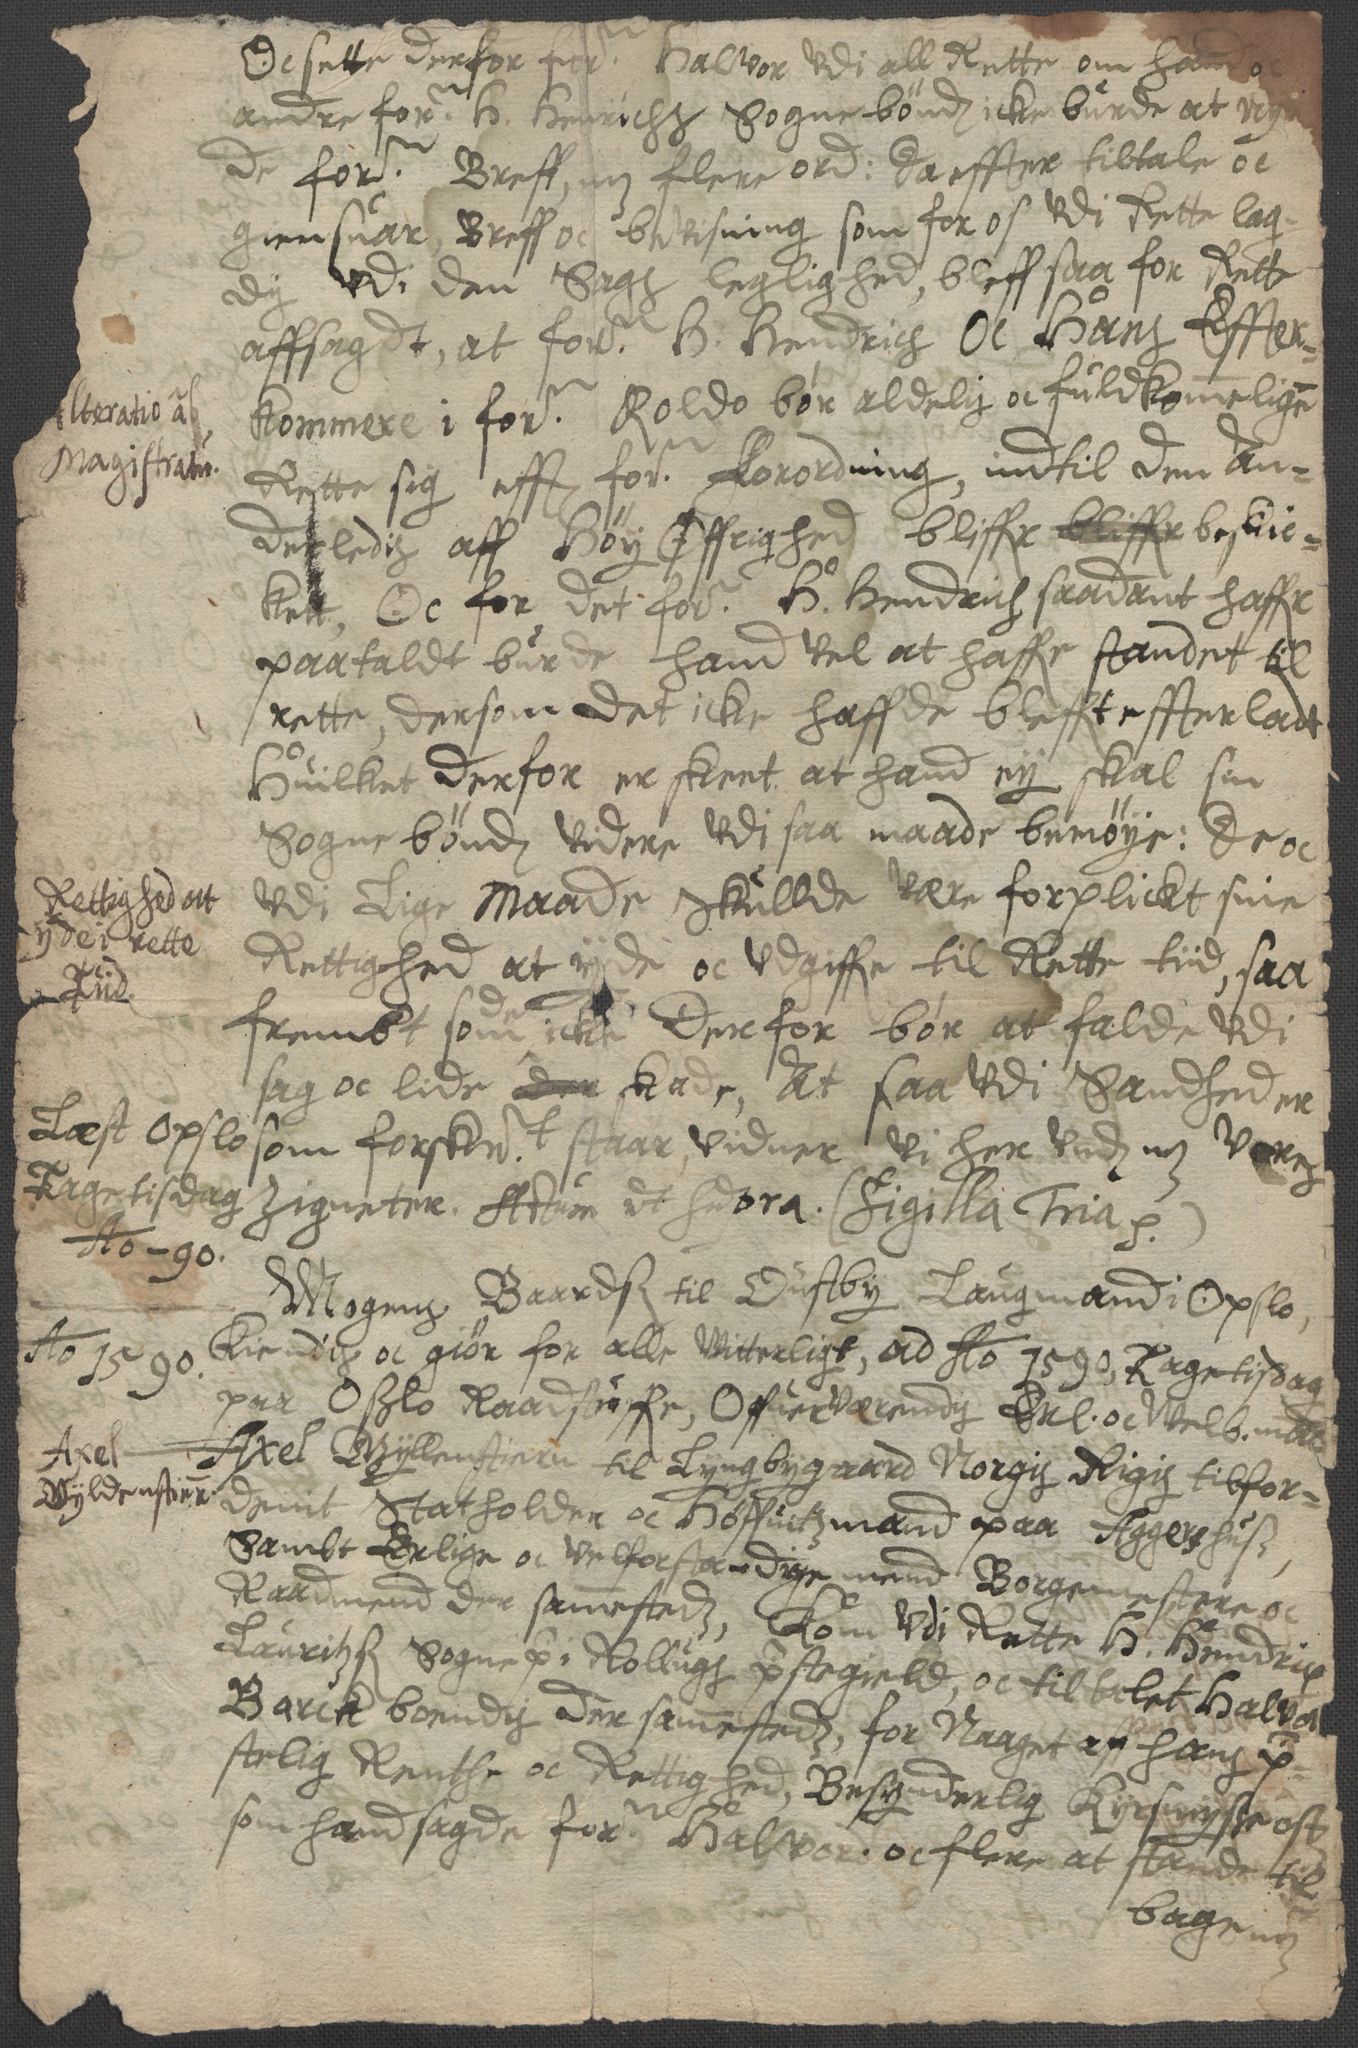 Oc sette derfor for:n Halvor Vdi all Rette om hand oc
andre for:n H. Henrichs Sognebønder icke burde at
de for:ne Breff, m; flere ord: Da effter tiltale oc
giensuar, Breff oc beVisning som for os Vdi Rette lag-
dis Vdi den Sags leglighed, bleff saa for Rette
affsagdt, at for:ne H. Hendrich Oc Hans Effter=
Alteratio
Magistratu.
kommere i for:ne Roldo bør aldelis oc fuldkommeligen
Rette sig efft for:ne Forordning, indtil den An=
derledis aff Høy Øffrighed bliffr bliffr beskic=
kett, Oc for det for:ne H. Hendrich saadant haffr
paataldt burde hand Vel at haffe standet til
rette, dersom det icke haffde blefft effterladt
Huilket derfor er skeet at hand ey skal sin
Sognebønder videre Vdi saa maade bemøye: De oc
Rettighed att
yde i rette
Tiid.
Vdi Lige Maade Skullde være forplickt sine
Rettighed at yde oc Vdgiffe til Rette tiid, saa
frembt som de icke derfor bør at falde Vdi
sag oc lide der kade, At saa Vdi Sandhed er
Læst Opslo
Kagetisdag
Ao -90.
som forskr:t staar, vidner vi her Vnder m; Vores
Zigneter. Actum vt supra. (Sigilla Tria p.)
Mogens Baards; til Øustby Laugmand i Opslo,
Ao 1590.
Kiendis oc giør for alle Vitterligt, ad Ao 1590, Kagetisdag
paa Oszlo Raadstuffe, Ofuerværendis Erl. oc Velb. mand
Axel
Gyldenstiern
Axel Gyllenstiern til Lyngbygaard Norgis Rigis tilfor=
denit Statholder oc Høffuitzmand paa Aggershus,
Sambt Erlige oc Velforstandige mend Borgemestere oc
Raadmend der sammesteds, Kom Vdi Rette H. Hendrich
Lauritzs; Sogne p: i Rollugs p:stegield, oc tiltalet Halvor
Barck boendis der sammesteds, for Naaget aff hans p:=
stelig Renthe oc Rettighed, Besynderlig Kyrsmysse ost
som hand sagde for:ne Halvor oc flere at stande til
bage m;